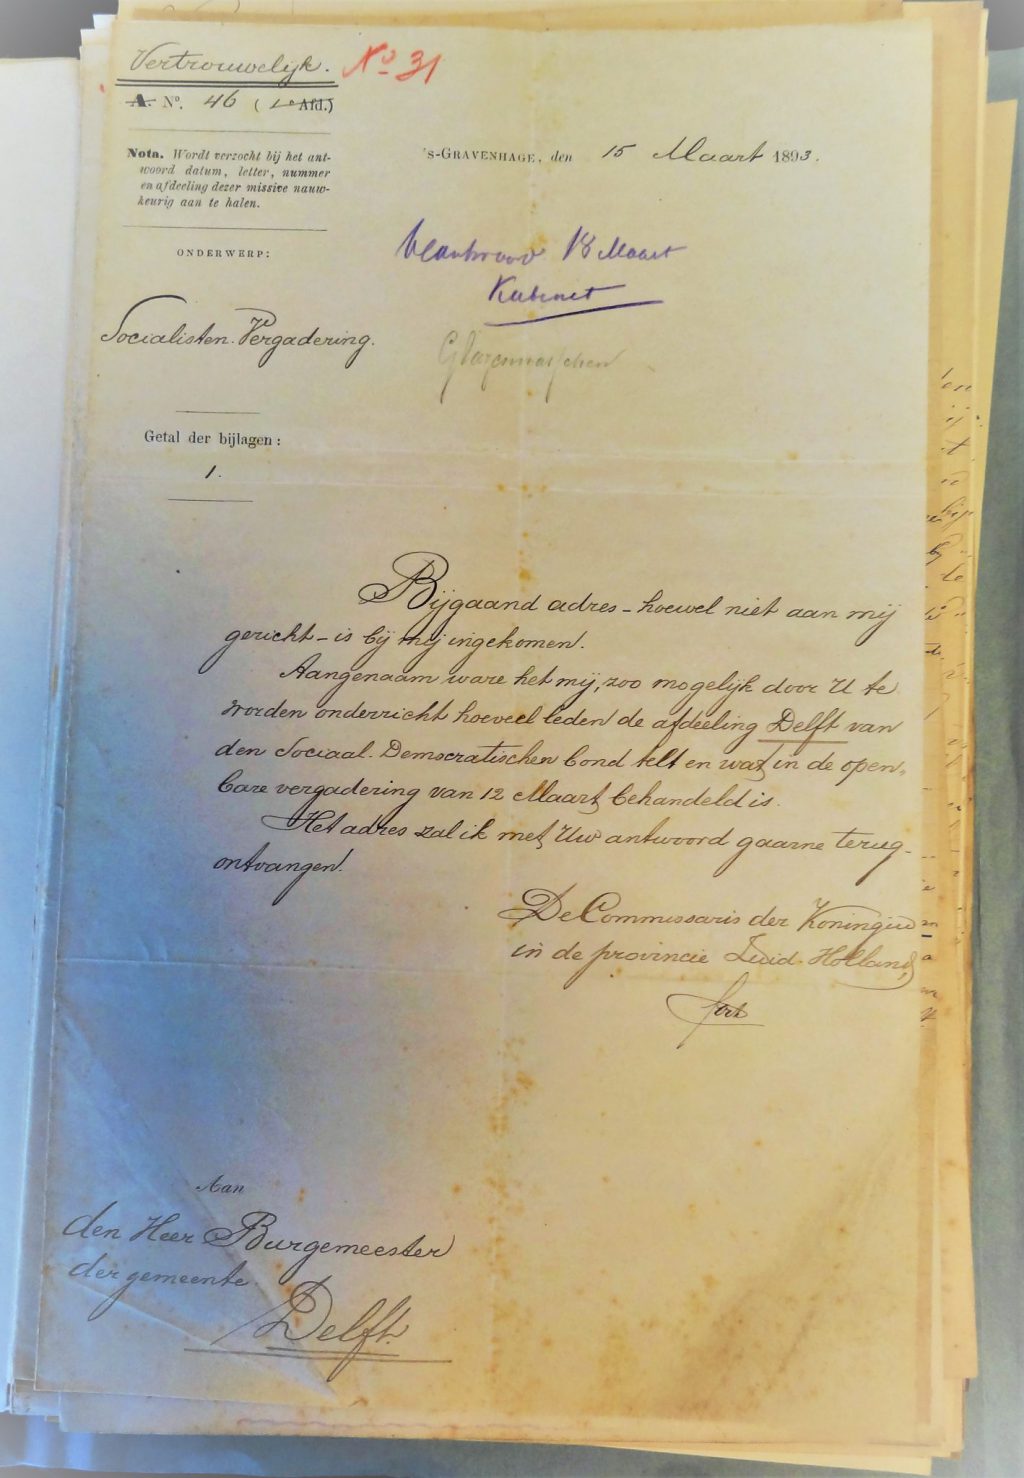 Vertrouwelijk.
No 31
A. No. 46 (1e Afd.)
Nota. Wordt verzocht bij het ant-
woord datum, letter, nummer
en afdeeling dezer missive nauw-
keurig aan te halen.
'S-GRAVENHAGE, den 15 Maart 1893.
ONDERWERP:
18 Maart
Kabinet
Socialisten-Vergadering.
Getal der bijlagen:
1.
Bijgaand adres - hoewel niet aan mij
gericht - is bij mij ingekomen.
Aangenaam ware het mij, zoo mogelijk door U te
worden onderricht hoeveel leden de afdeeling Delft van
den Sociaal-Democratischen bond telt en wat in de open-
bare vergadering van 12 Maart behandeld is.
Het adres zal ik met Uw antwoord gaarne terug-
ontvangen.
De Commissaris der Koningin
in de provincie Zuid-Holland,
Aan
den Heer Burgemeester
der gemeente
Delft.